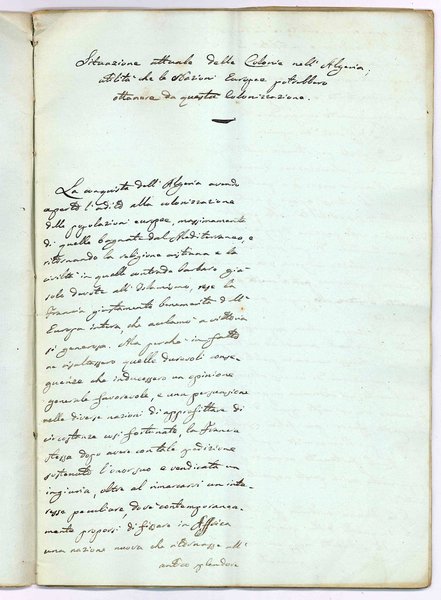 Situazione attuale delle Colonie nell'Algeria;
utilità che le Nazioni Europee potrebbero
ottenere da questa Colonizzazione.
La conquista dell'Algeria avendo
aperto l'adito alla colonizzazione
delle popolazioni europee, massimamente
di quelle bagnate dal Mediterraneo, e
ritornando la religione cristiana e la
civiltà in quelle contrade barbare già
solo devote all'Islamismo, rese la
Francia giustamente benemerita dell'
Europa intera, che acclamò a vittoria
sì generosa. Ma perchè in fatto
ne risaltassero quelle durevoli conse-
guenze che inducessero un opinione
generale favorevole, e una persuasione
nelle diverse nazioni di approfittare di
circostanza così fortunata, la Francia
stessa dopo avere con tale spedizione
sostenuto l'onor suo e vendicata un
ingiuria, oltre al rimercarsi un inte-
resse peculiare dove contemporanea-
mente proporsi di fissare in Affrica
una nazione nuova che ritornasse all'
antico splendore